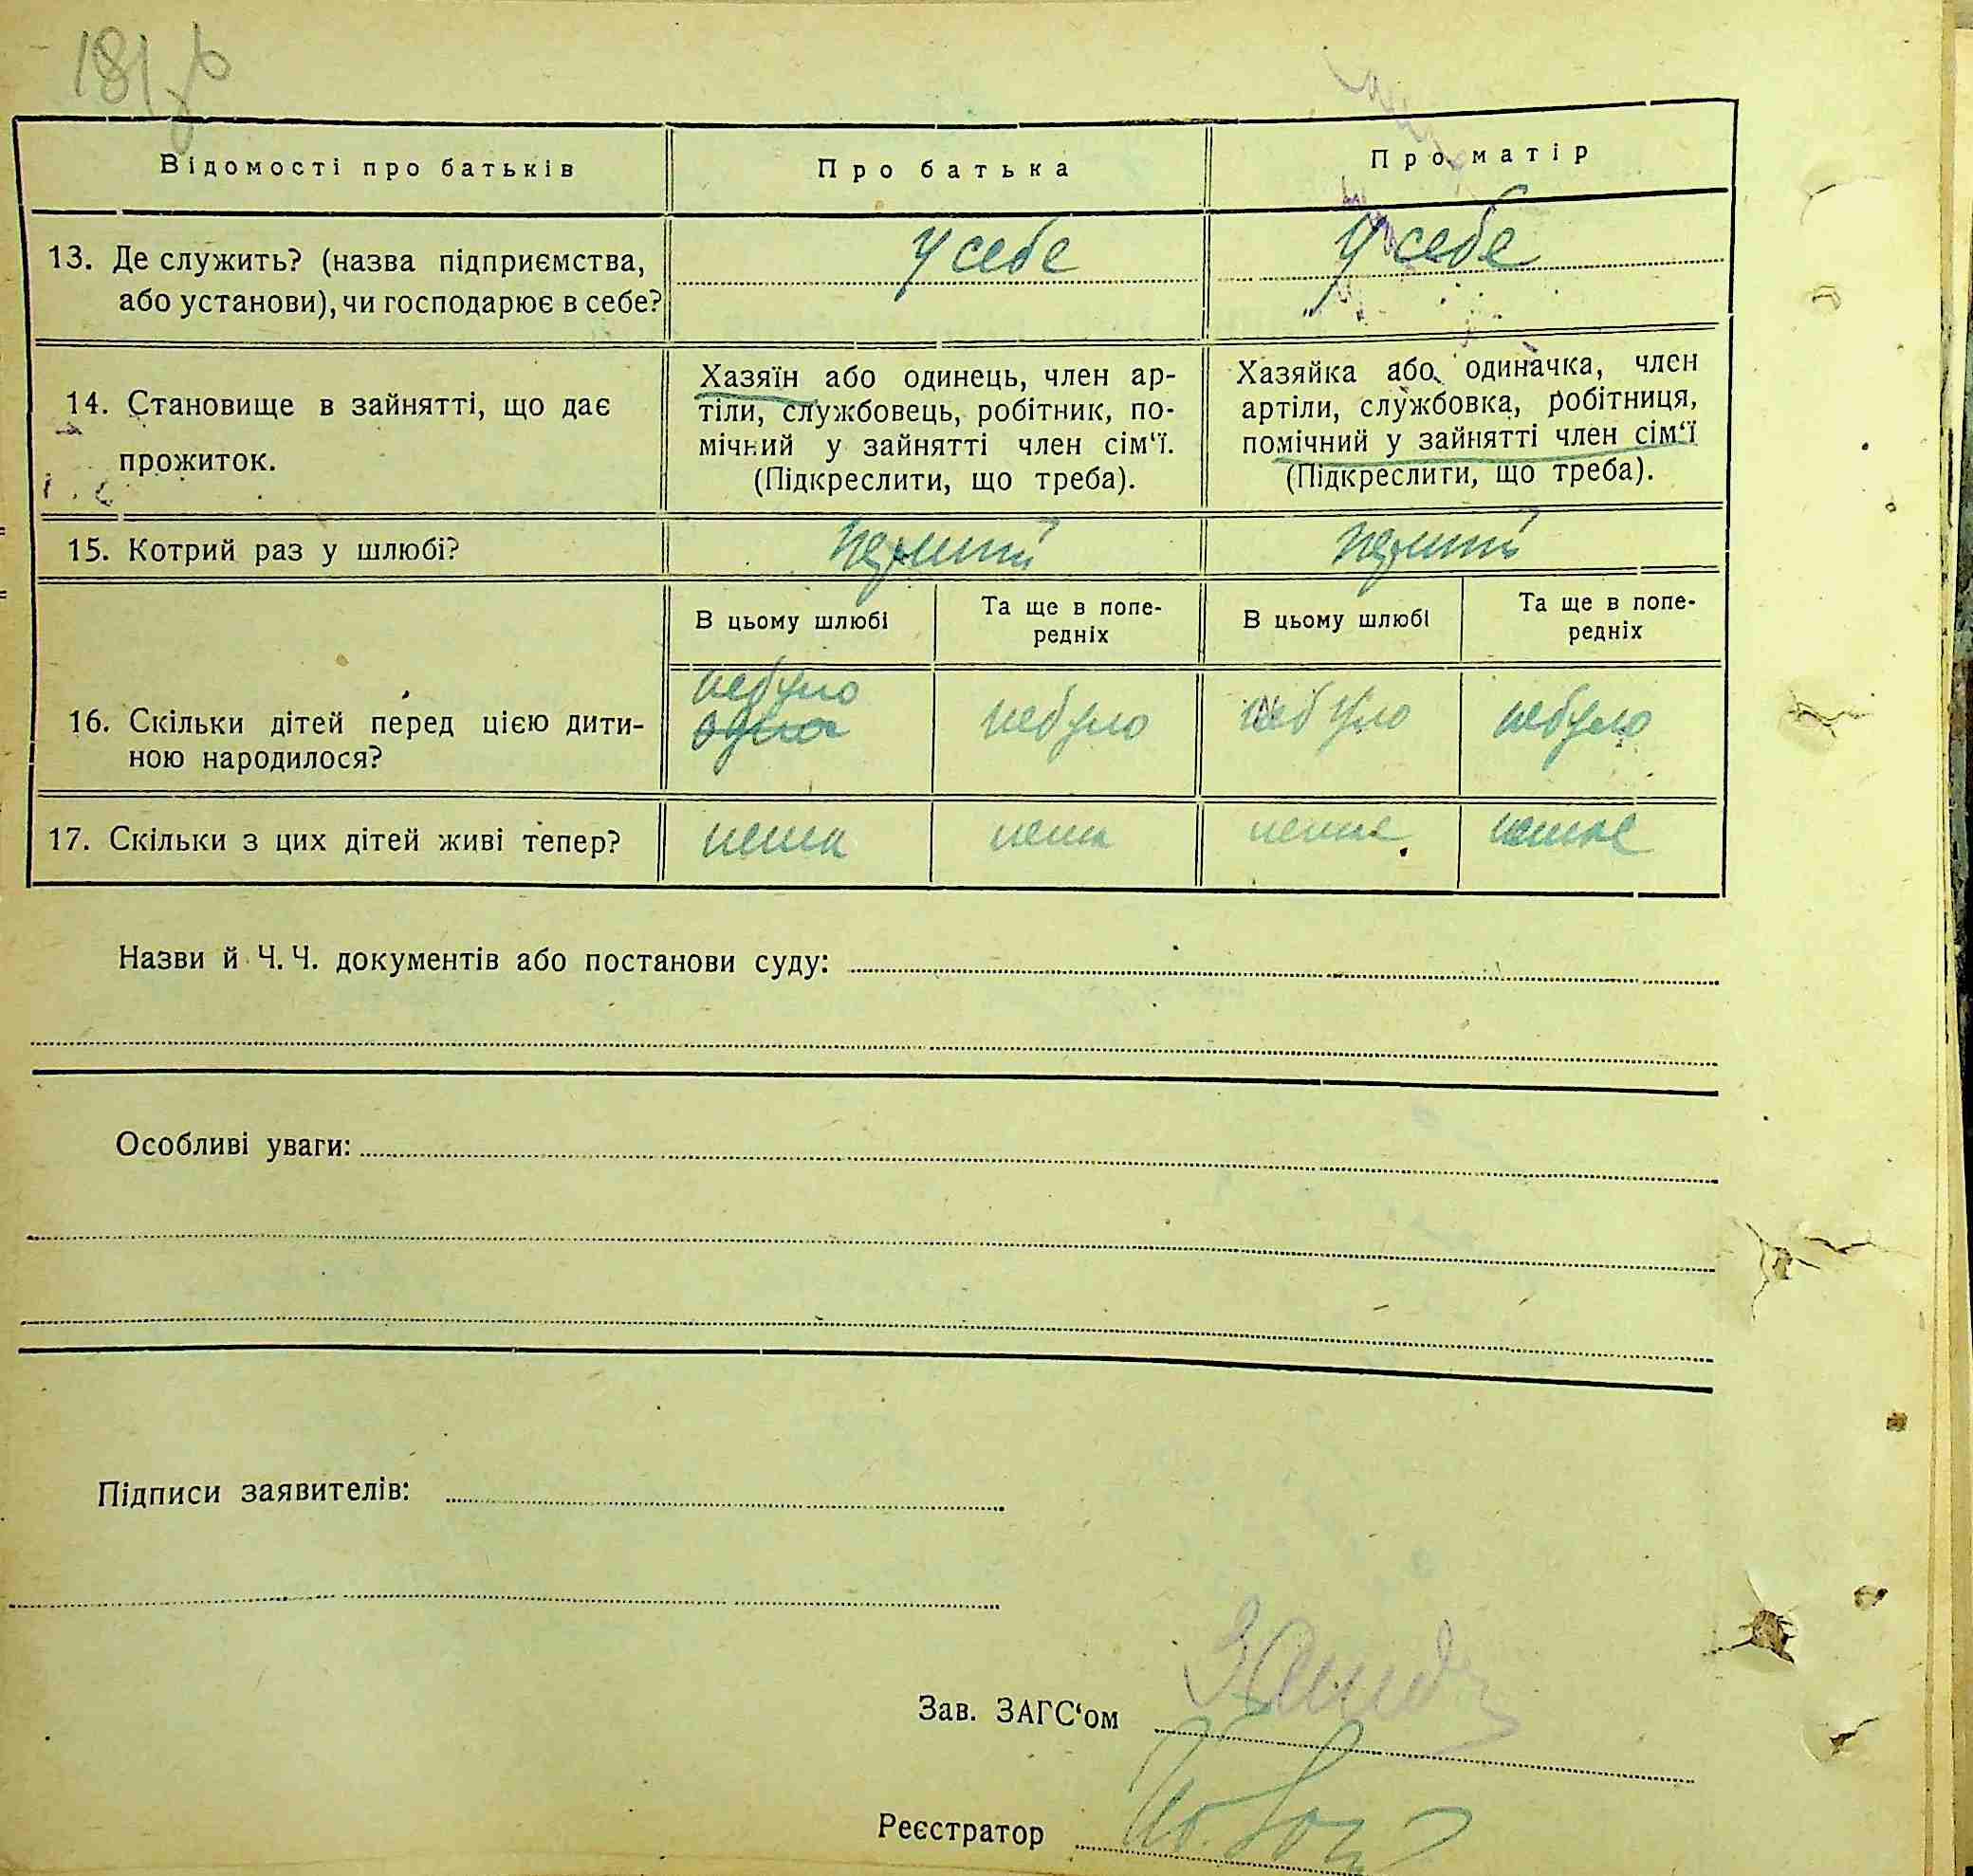 Відомості про батьків Про батька Про матір
13. Де служить? (назва підприємства, або установи), чи господарює в себе? у себе у себе
14. Становище в зайнятті, що дає прожиток.
Хазяїн або одинець, член ар-
тіли, службовець, робітник, по-
мічний у зайнятті член сім'ї.
(Підкреслити, що треба).
Хазяйка або одиначка, член
артіли, службовка, робітниця,
помічний у зайнятті член сім'ї
(Підкреслити, що треба).
15. Котрий раз у шлюбі? перший перший
В цьому шлюбі Та ще в попе-
редніх В цьому шлюбі Та ще в попе-
редніх
16. Скільки дітей перед цією дити-
ною народилося? небуло одна небуло небуло небуло
17. Скільки з цих дітей живі тепер? нема нема немає немає
Назви й Ч. Ч. документів або постанови суду:
Особливі уваги:
Підписи заявителів:
Зав. ЗАГС'ом
Реєстратор